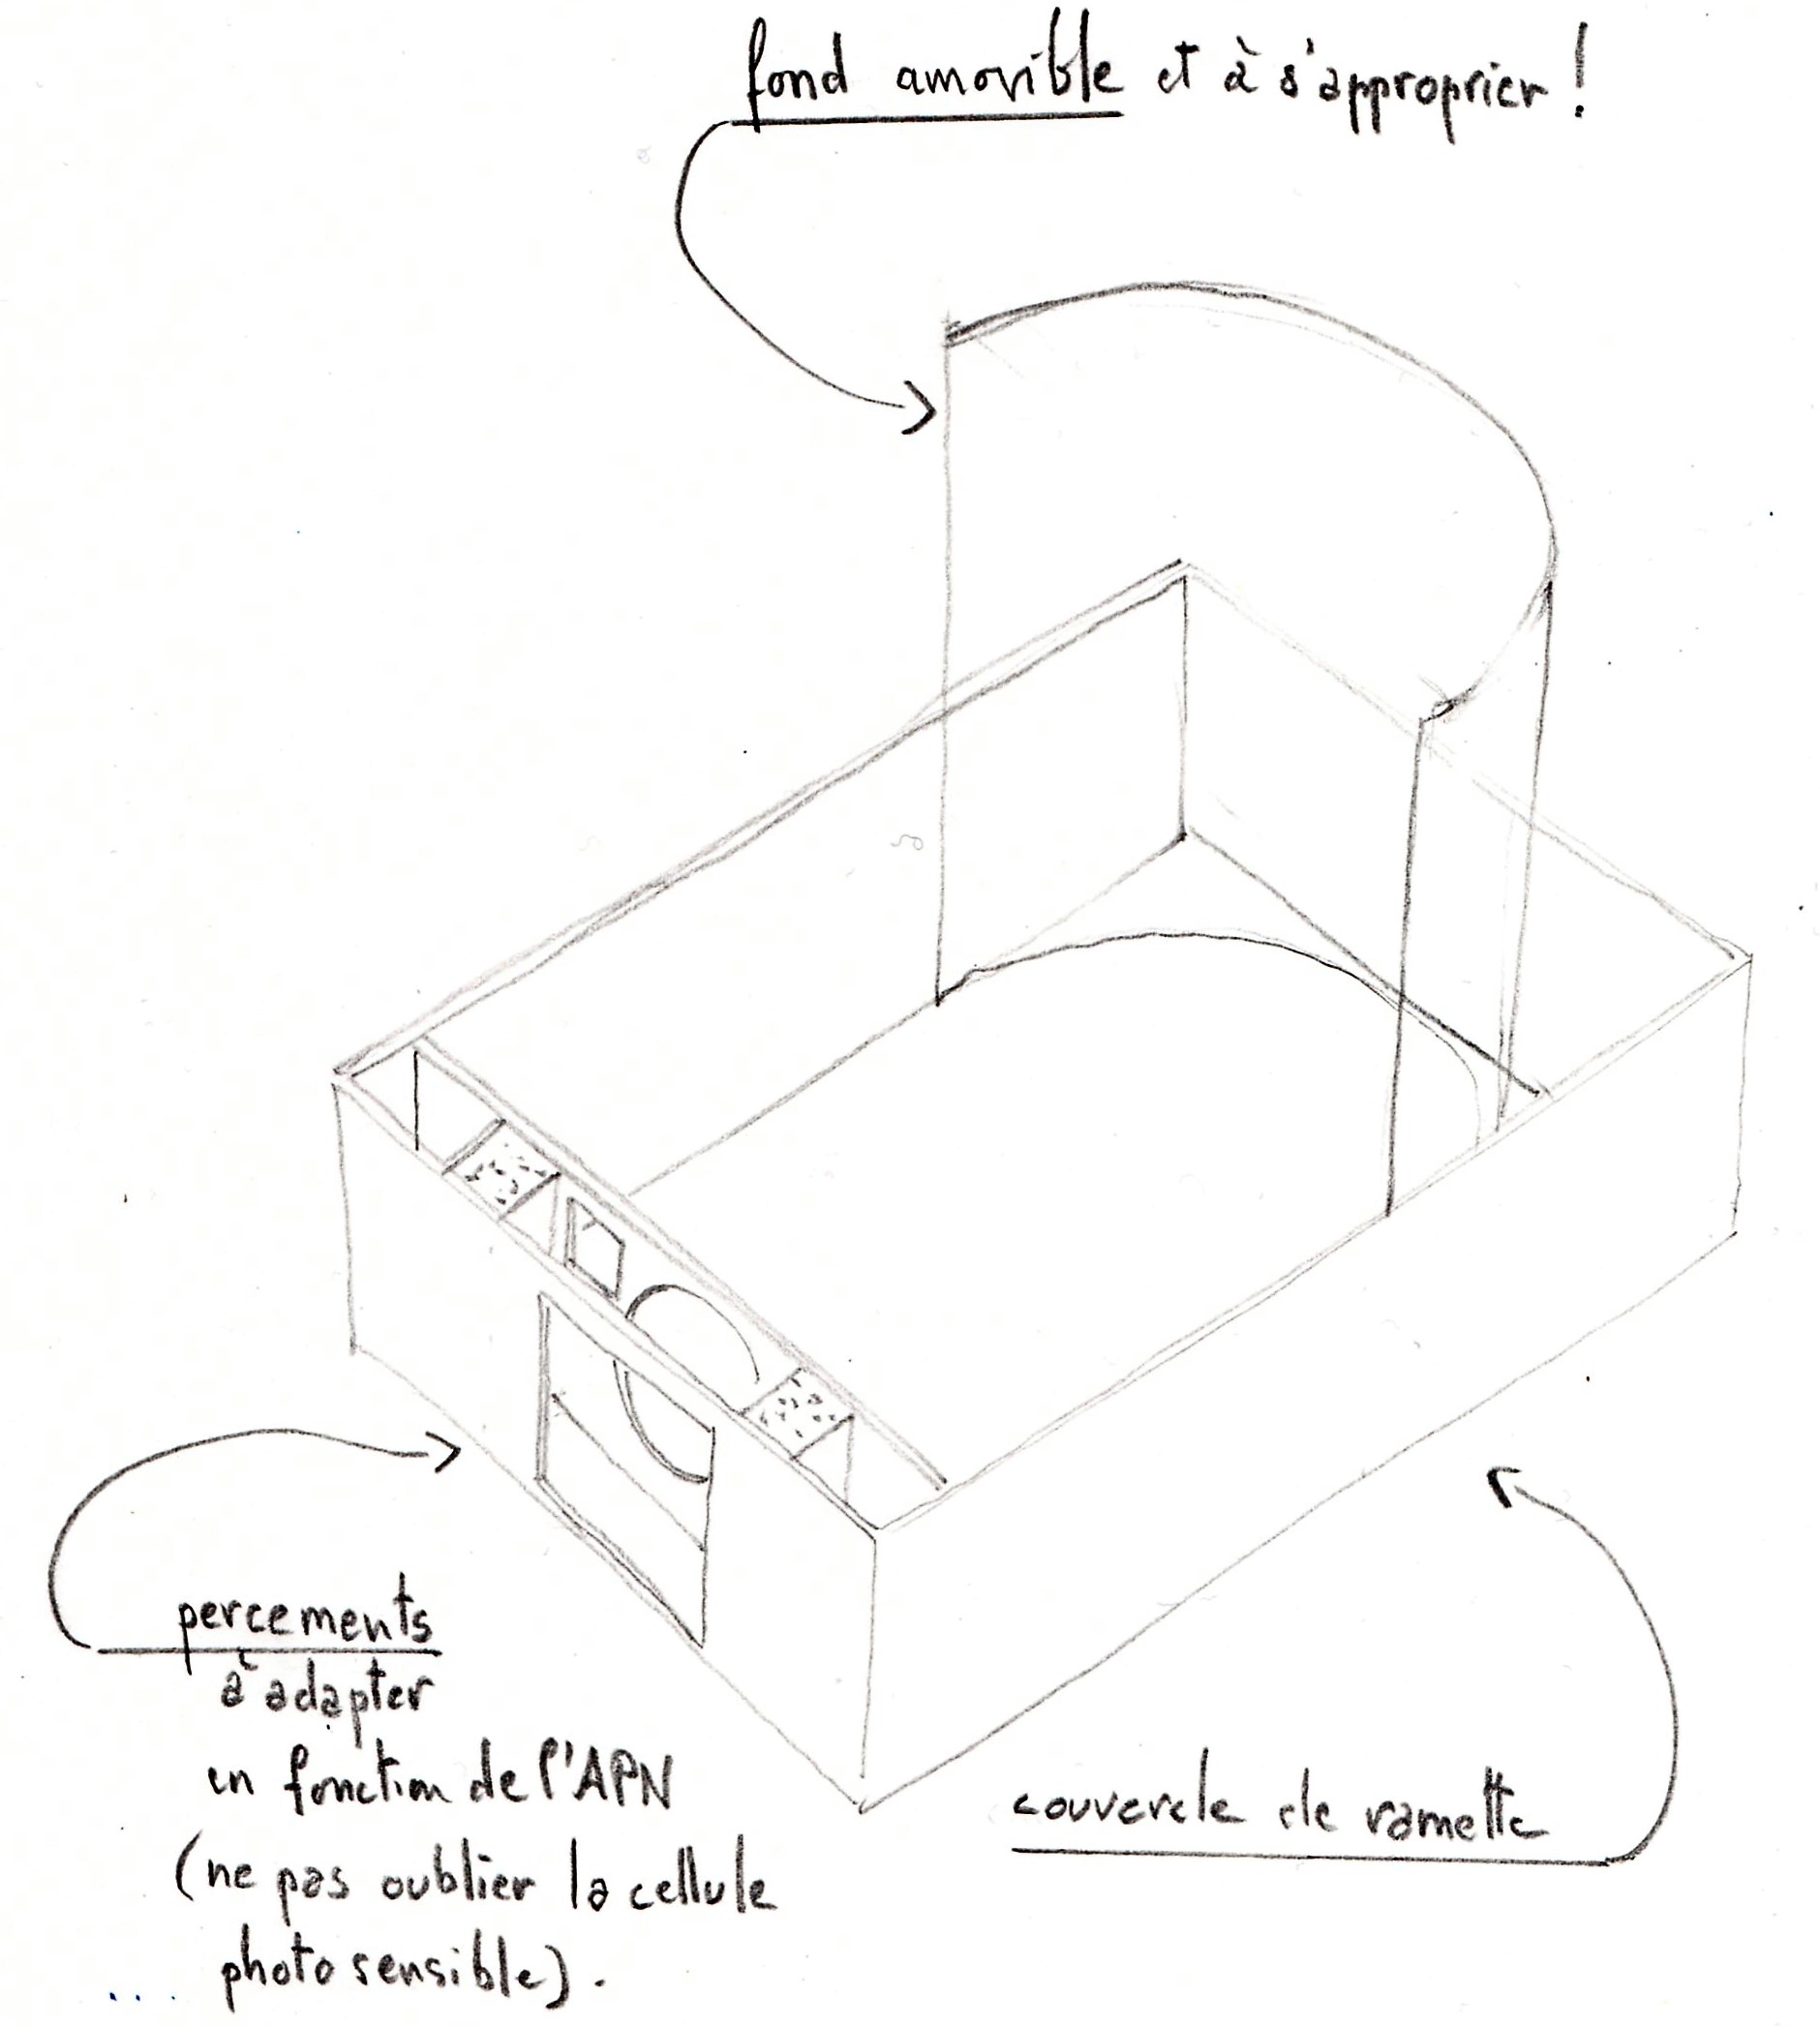 fond amovible et à s'approprier !
percements
à adapter
en fonction de l'APN
(ne pas oublier la cellule
photosensible).
couvercle de ramette